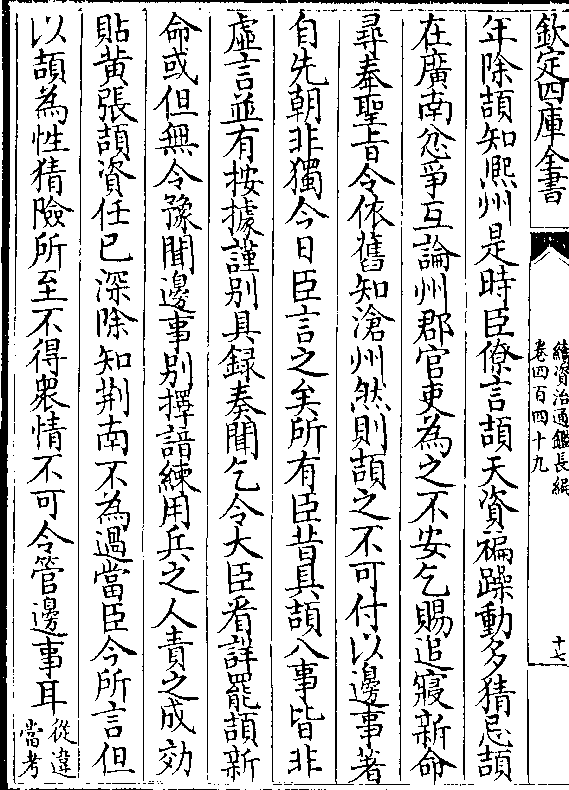 欽定四庫全書
續資治通鑑長編
卷四百四十九
十七
年除頡知熈州是時臣僚言頡天資褊躁動多猜忌頡
在廣南忿爭互論州郡官吏為之不安乞賜追寢新命
尋奉聖旨令依舊知滄州然則頡之不可付以邊事著
自先朝非獨今日臣言之矣所有臣昔具頡八事皆非
虛言並有按據謹别具録奏聞乞令大臣看詳罷頡新
命或但無令豫聞邊事别擇諳練用兵之人責之成効
貼黄張頡資任已深除知荆南不為過當臣今所言但
以頡為性猜險所至不得衆情不可令管邊事耳
從違
當考